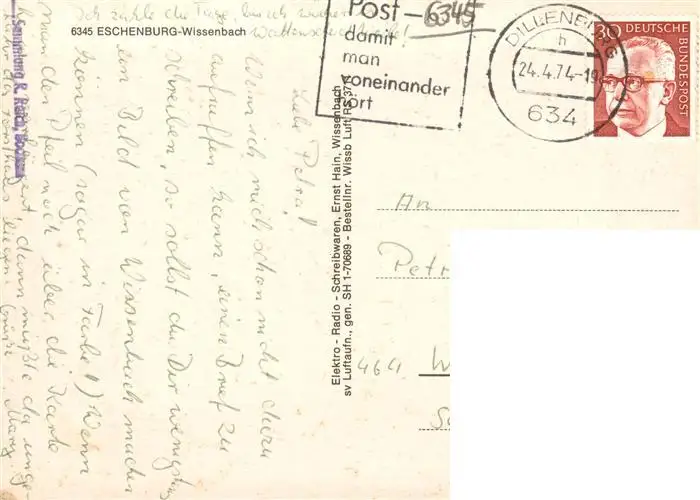 Ich zähle die Tage, bis ich wieder
6345 ESCHENBURG-Wissenbach
Post - 6345
damit
man
voneinander
hört
DILLENBURG
h
24.4.74-19
634
30 DEUTSCHE
BUNDESPOST
Sammlung R. Reita,
Liebe Petra!
Wenn ich mich schon nicht dazu
aufraffen kann, einen Brief zu
schreiben, so sollst du Dir wenigstens
ein Bild von Wissenbach machen
können (sogar in Farbe!) Wenn
man den Pfeil noch über die Karte
dann müßte da unge-
Elektro - Radio - Schreibwaren, Ernst Hain, Wissenbach
sv Luftaufn., gen. SH 1-70689 - Bestellnr. Wissb Luft RS 377
An
Petr
464 W